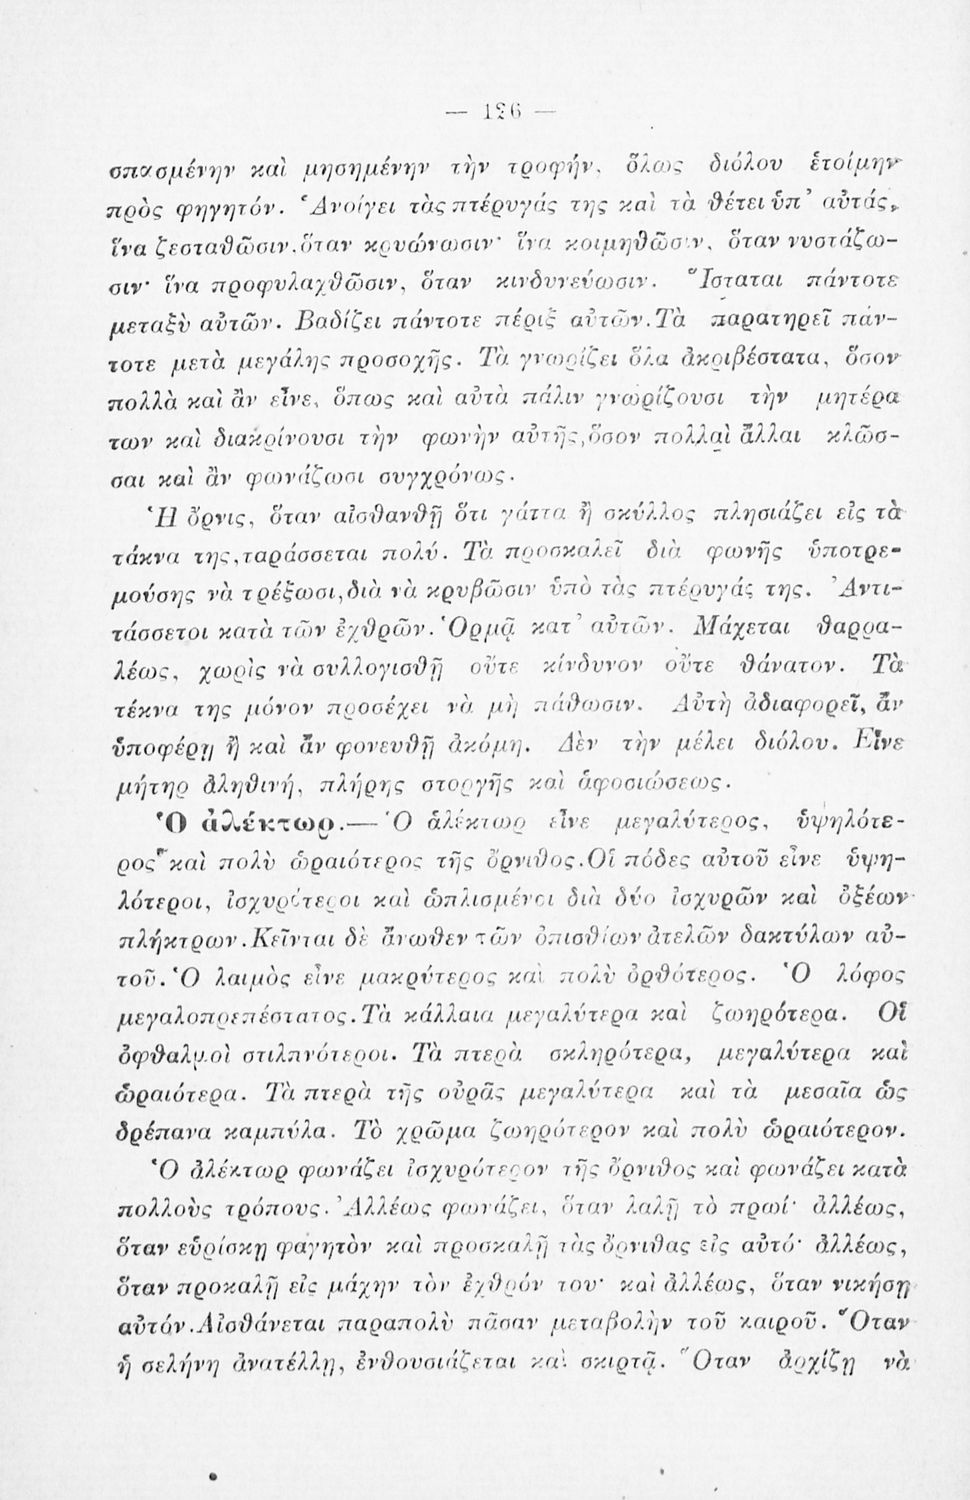 — 126 —
σπασμένην καὶ μησημένην τὴν τροφήν, ὅλως διόλου ἑτοίμην
πρὸς φηγητόν. Ἀνοίγει τὰς πτέρυγάς της καὶ τὰ θέτει ὑπ' αὐτάς,
ἵνα ζεσταθῶσιν, ὅταν κρυώνωσιν· ἵνα κοιμηθῶσιν, ὅταν νυστάζω-
σιν· ἵνα προφυλαχθῶσιν, ὅταν κινδυνεύωσιν. Ἵσταται πάντοτε
μεταξὺ αὐτῶν. Βαδίζει πάντοτε πέριξ αὐτῶν. Τὰ παρατηρεῖ πάν-
τοτε μετὰ μεγάλης προσοχῆς. Τὰ γνωρίζει ὅλα ἀκριβέστατα, ὅσον
πολλὰ καὶ ἂν εἶνε, ὅπως καὶ αὐτὰ πάλιν γνωρίζουσι τὴν μητέρα
των καὶ διακρίνουσι τὴν φωνὴν αὐτῆς, ὅσον πολλαὶ ἄλλαι κλῶσ-
σαι καὶ ἂν φωνάζωσι συγχρόνως.
Ἡ ὄρνις, ὅταν αἰσθανθῇ ὅτι γάττα ἢ σκύλλος πλησιάζει εἰς τὰ
τάκνα της, ταράσσεται πολύ. Τὰ προσκαλεῖ διὰ φωνῆς ὑποτρε-
μούσης νὰ τρέξωσι, διὰ νὰ κρυβῶσιν ὑπὸ τὰς πτέρυγάς της. Ἀντι-
τάσσετοι κατὰ τῶν ἐχθρῶν. Ὁρμᾷ κατ' αὐτῶν. Μάχεται θαρρα-
λέως, χωρὶς νὰ συλλογισθῇ οὔτε κίνδυνον οὔτε θάνατον. Τὰ
τέκνα της μόνον προσέχει νὰ μὴ πάθωσιν. Αὐτὴ ἀδιαφορεῖ, ἄν
ὑποφέρῃ ἢ καὶ ἄν φονευθῇ ἀκόμη. Δὲν τὴν μέλει διόλου. Εἶνε
μήτηρ ἀληθινή, πλήρης στοργῆς καὶ ἀφοσιώσεως.
Ὁ ἀλέκτωρ.— Ὁ ἀλέκτωρ εἶνε μεγαλύτερος, ὑψηλότε-
ρος καὶ πολὺ ὡραιότερος τῆς ὄρνιθος. Οἱ πόδες αὐτοῦ εἶνε ὑψη-
λότεροι, ἰσχυρότεροι καὶ ὡπλισμένοι διὰ δύο ἰσχυρῶν καὶ ὀξέων
πλήκτρων. Κεῖνται δὲ ἄνωθεν τῶν ὀπισθίων ἀτελῶν δακτύλων αὐ-
τοῦ. Ὁ λαιμὸς εἶνε μακρύτερος καὶ πολὺ ὀρθότερος. Ὁ λόφος
μεγαλοπρεπέστατος. Τὰ κάλλαια μεγαλύτερα καὶ ζωηρότερα. Οἱ
ὀφθαλμοὶ στιλπνότεροι. Τὰ πτερὰ σκληρότερα, μεγαλύτερα καὶ
ὡραιότερα. Τὰ πτερὰ τῆς οὐρᾶς μεγαλύτερα καὶ τὰ μεσαῖα ὡς
δρέπανα καμπύλα. Τὸ χρῶμα ζωηρότερον καὶ πολὺ ὡραιότερον.
Ὁ ἀλέκτωρ φωνάζει ἰσχυρότερον τῆς ὄρνιθος καὶ φωνάζει κατὰ
πολλοὺς τρόπους. Ἀλλέως φωνάζει, ὅταν λαλῇ τὸ πρωί· ἀλλέως,
ὅταν εὑρίσκῃ φαγητὸν καὶ προσκαλῇ τὰς ὄρνιθας εἰς αὐτό· ἀλλέως,
ὅταν προκαλῇ εἰς μάχην τὸν ἐχθρόν του· καὶ ἀλλέως, ὅταν νικήσῃ
αὐτόν. Αἰσθάνεται παραπολὺ πᾶσαν μεταβολὴν τοῦ καιροῦ. Ὅταν
ἡ σελήνη ἀνατέλλῃ, ἐνθουσιάζεται καὶ σκιρτᾷ. Ὅταν ἀρχίζῃ νὰ